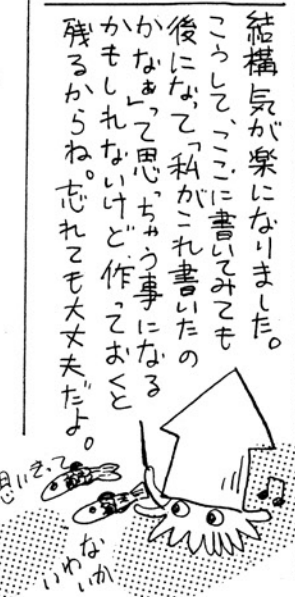 結構気が楽になりました。
こうして、ここに書いてみても
後になって「私がこれ書いたの
かなぁ」って思っちゃう事になる
かもしれないけど、作っておくと
残るからね。忘れても大丈夫だよ。
思いきって
ないか
いわ